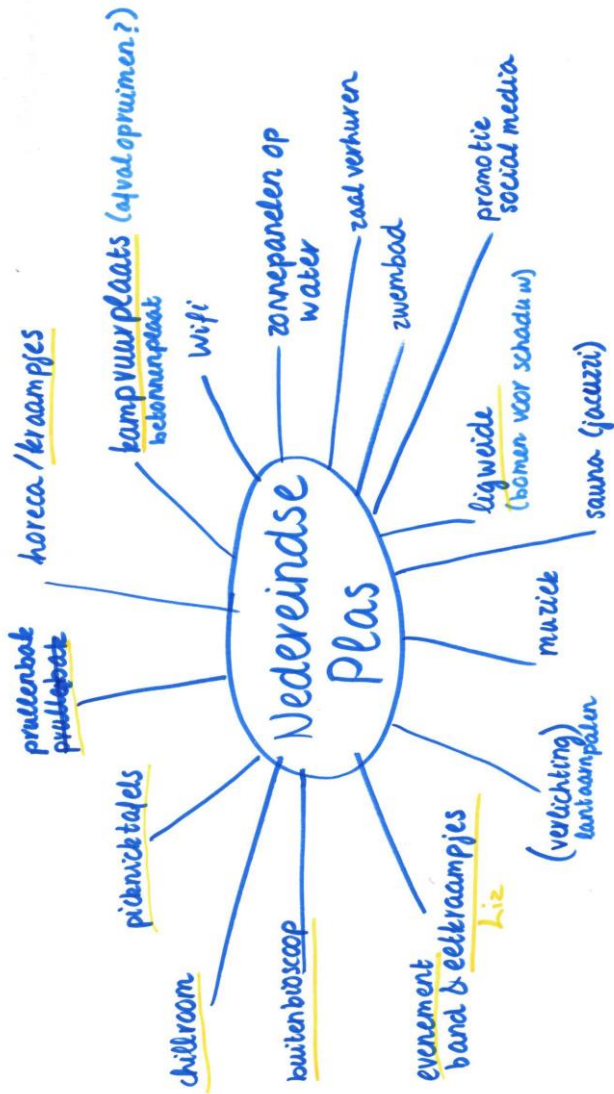 Nedereindse
Plas
horeca / kraampjes
kampvuurplaats (afval opruimen?)
betonnenplaat
Wifi
zonnepanelen op
water
zaal verhuren
zwembad
promotie
social media
ligweide
(bomen voor schaduw)
sauna (jacuzzi)
muziek
(verlichting)
lantaarnpalen
evenement
band & eetkraampjes
Liz
buitenbioscoop
chillroom
picknicktafels
prullenbak